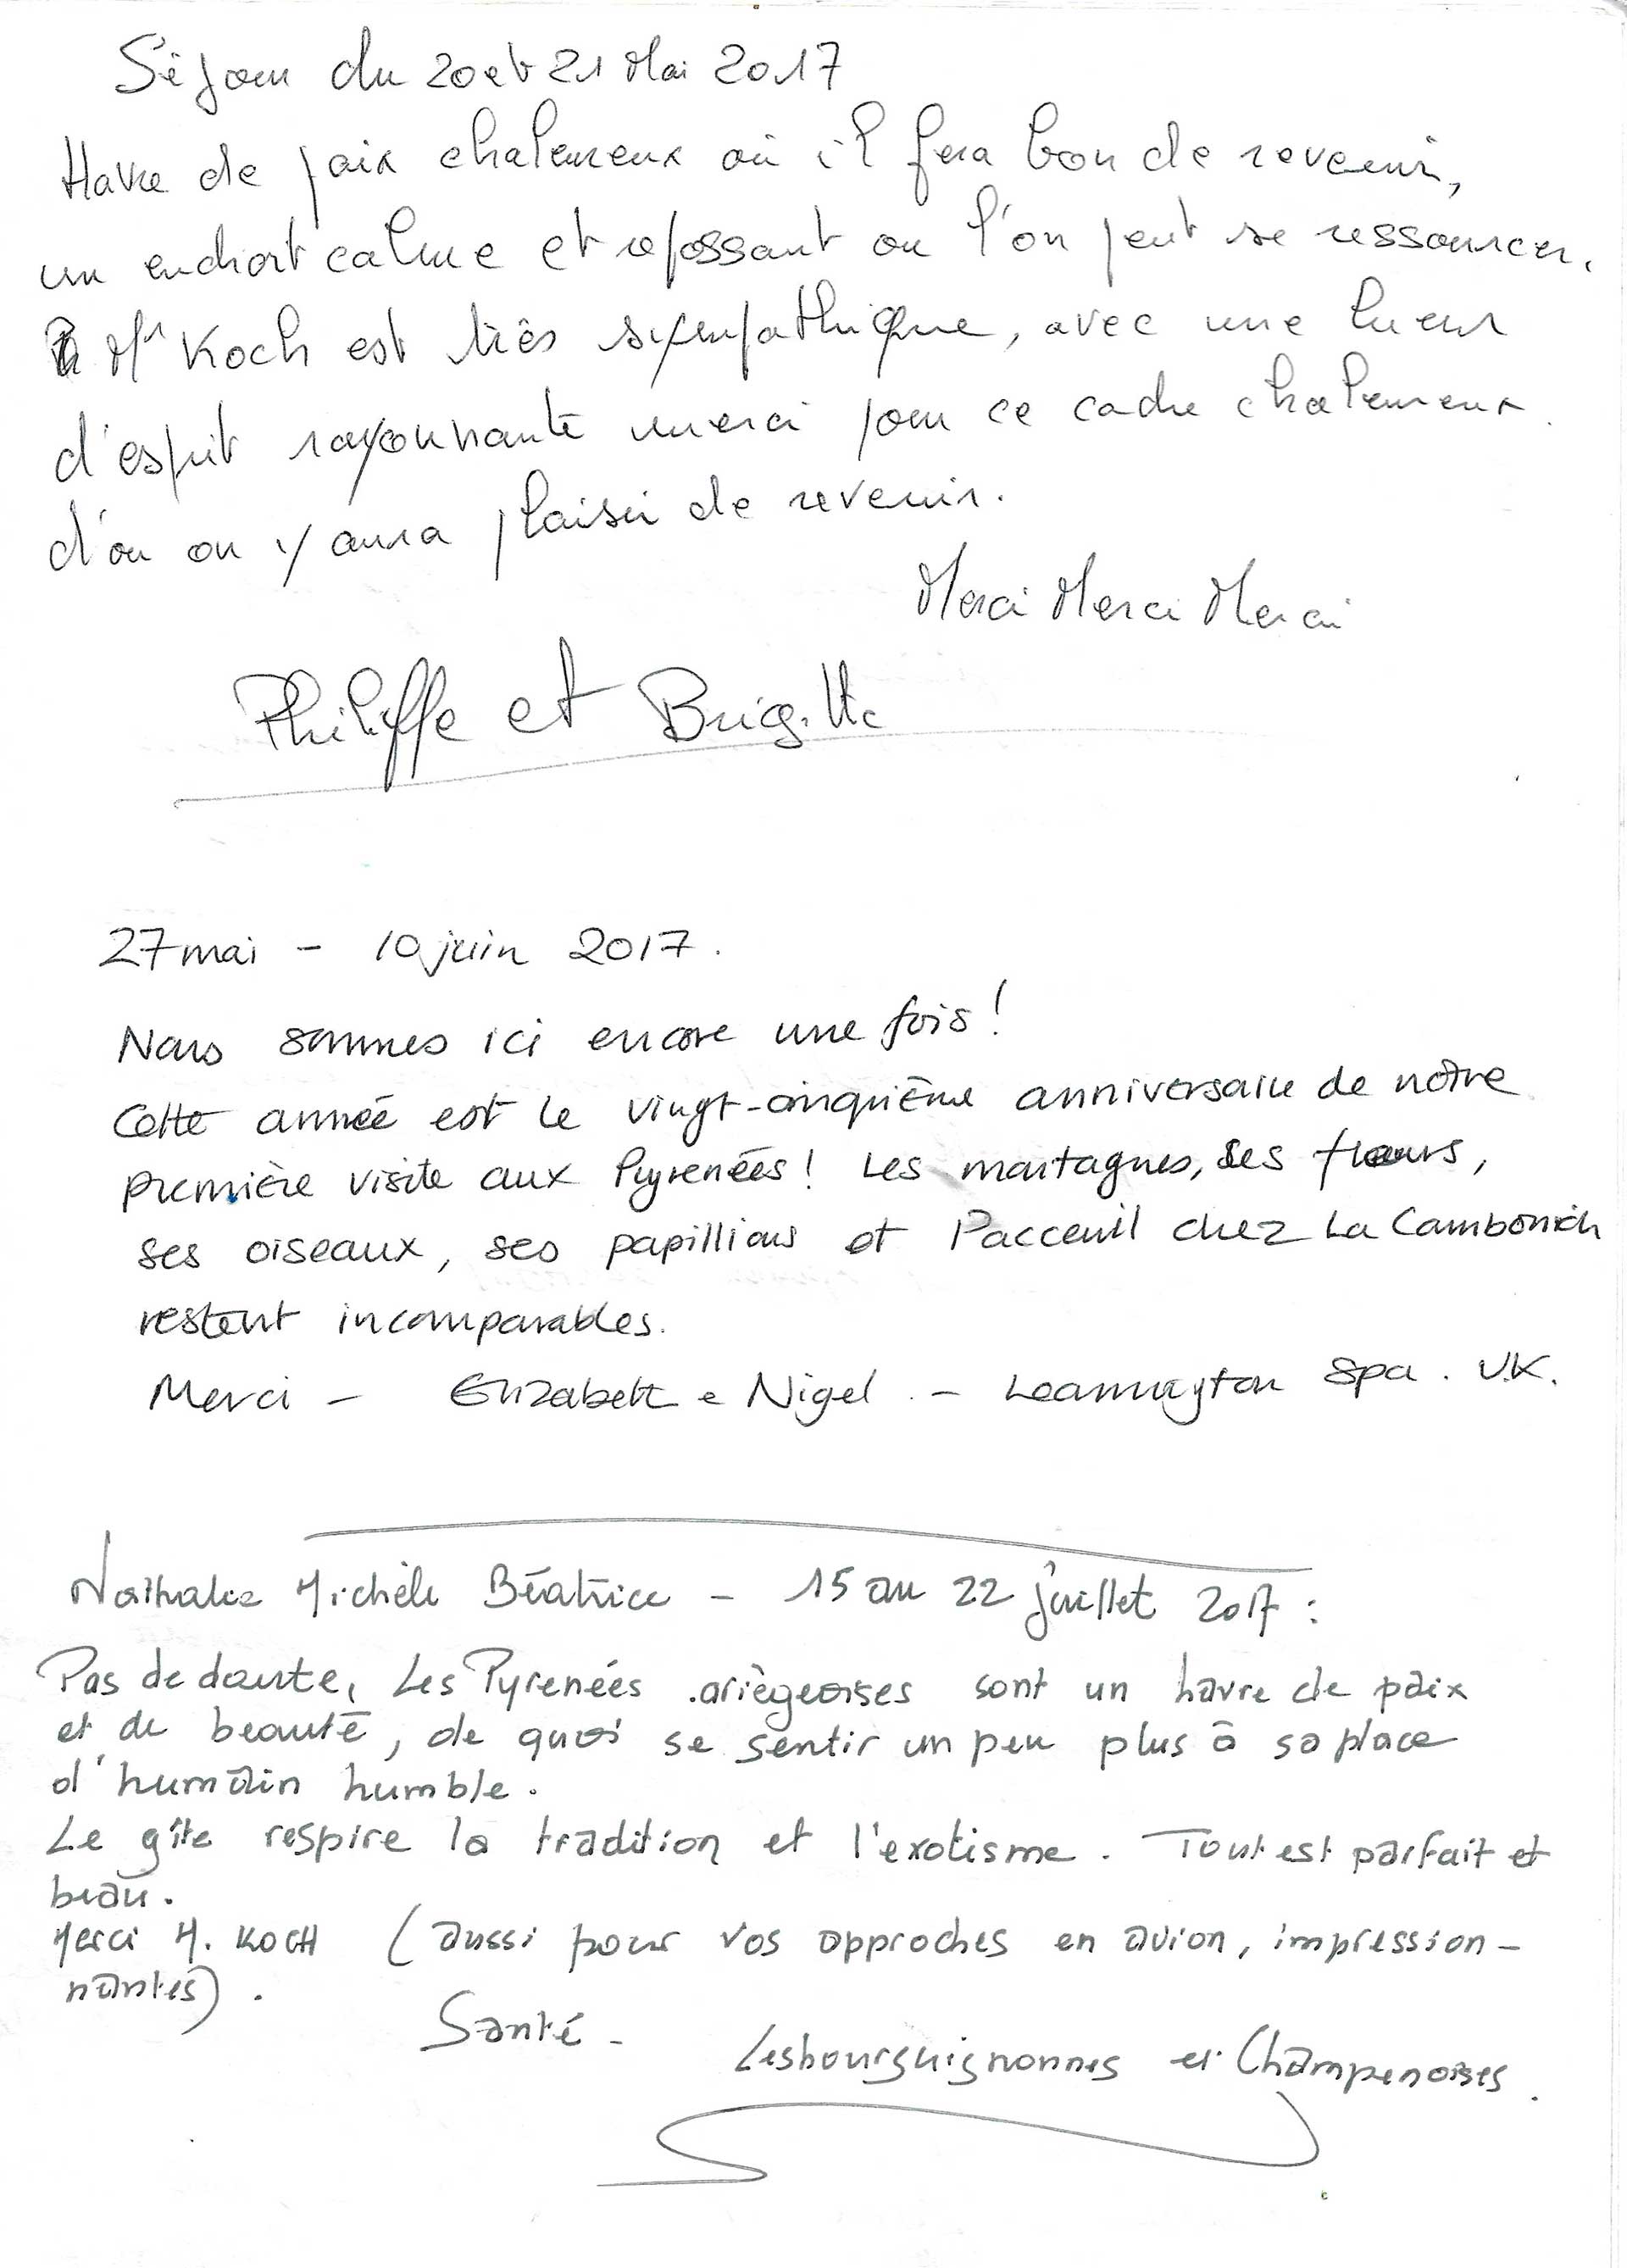 Séjour du 20 et 21 Mai 2017
Havre de paix chaleureux où il fera bon de revenir,
un endroit calme et repossant ou l'on peut se ressourcer.
Mr Koch est très sympathique, avec une lueur
d'esprit rayonnante merci pour ce cadre chaleureux.
d'ou on y aura plaisir de revenir.
Merci Merci Merci
Philippe et Brigitte
27 mai - 10 juin 2017.
Nous sommes ici encore une fois!
Cette année est le vingt-cinquième anniversaire de notre
première visite aux Pyrenées! Les montagnes, ses fleurs,
ses oiseaux, ses papillions et l'acceuil chez La Cambonich
restent incomparables.
Merci - Elizabeth e Nigel. - Leamington Spa. U.K.
Nathalie Michèle Béatrice - 15 au 22 juillet 2017 :
Pas de doute, Les Pyrenées ariègeoises sont un havre de paix
et de beauté, de quoi se sentir un peu plus à sa place
d'humain humble.
Le gîte respire la tradition et l'exotisme. Tout est parfait et
beau.
Merci M. KOCH (aussi pour vos approches en avion, impression-
nantes).
Santé -
Les bourguignonnes et Champenoises.